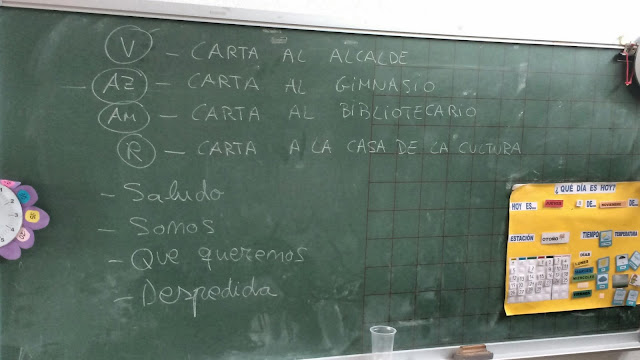 V – CARTA AL ALCALDE
– AZ – CARTA AL GIMNASIO
AM – CARTA AL BIBLIOTECARIO
R – CARTA A LA CASA DE LA CULTURA
- Saludo
- Somos
- Que queremos
- Despedida
¿QUÉ DÍA ES HOY?
HOY ES... JUEVES DE... DE...
ESTACIÓN OTOÑO TIEMPO TEMPERATURA
LUNES
MIÉRCOLES